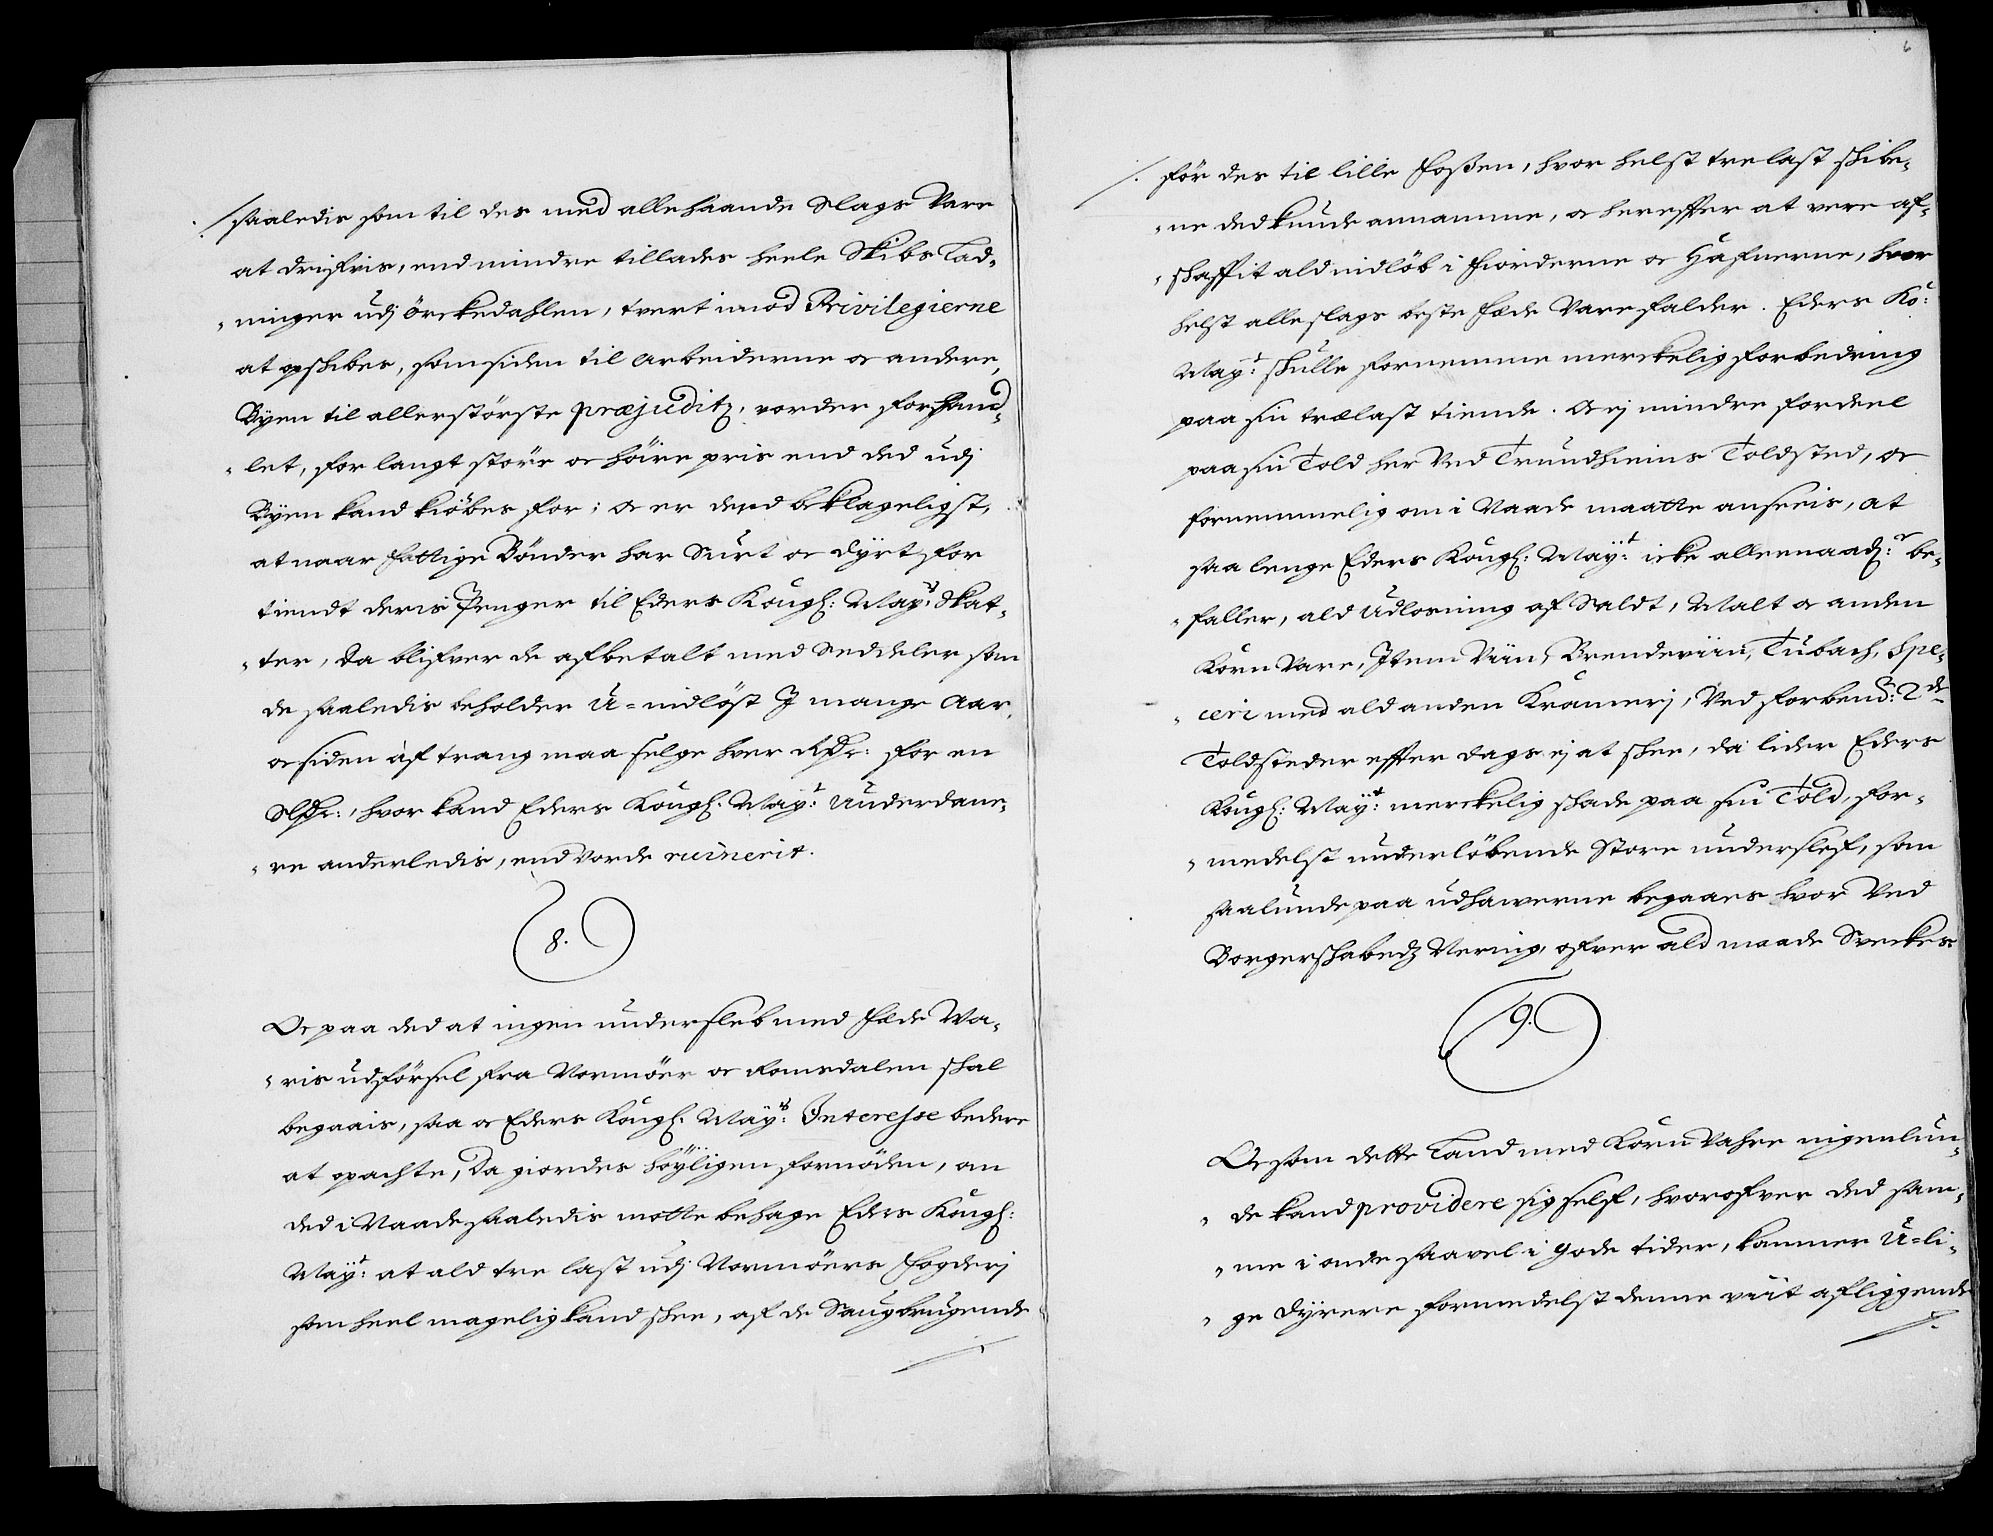 saaledis som til des med alle haande Slags Vare
at drifvis, end mindre tillades heele Skibs Lad-
ninger udj örckedahlen, tvert imod Privilegierne
at opskibes, som siden til Arbeiderne oc andere,
Byen til allerstörste præjuditz, vorder forhand-
let, for langt störe oc höire pris end ded udj
Byen kand kiöbes for; oc er dend beklageligst,
at naar fattige Bönder har Suurt oc dyrt for
tiendt deris Penger til Eders Kongl: Mayts: Skat-
ter, da blifver de afbetalt med Seddeler som
de saaledis beholder U=indlöst J mange Aar,
oc siden af trang maa selge hver Rdr: for en
Sldr:, hvor kand Eders Kongl. Mayt: Underdane-
re anderledis, end vorde ruinerit.
8.
Oc paa ded at ingen undersleb med fæde Wa-
ris udförsel fra Normöer oc Romsdalen skal
begaais, saa oc Eders Kongl. Mayts: Interesse bedere
at opachte, da giordes höyligen fornöden, om
ded i Naade saaledis motte behage Eders Kongl:
Mayt: at ald tre last udj Normöers fogderj
som heel magelig kand skee, af de Saugbrugende
6
för des til lille fosßen, hvor helst trelast skibe-
ne ded kunde annamme, oc hereffter at vere af-
skaffit ald indlöb i fiorderne oc Hafnerne, hvor
helst alle slags beste fæde Vare falder. Eders Ko:
Mayt: skulle fornemme merckelig forbedring
paa sin trælast tiende. Oc ej mindre fordeel
paa sin Told her Ved Trundhiems Toldsted, oc
fornemmelig om i Naade maatte anseeis, at
saa lenge Eders Kongl: Mayt: icke allernaadr: be-
faller, ald Udlosning af Saldt, Malt oc anden
Korn Vare, Item Viin, Brendeviin, Tubach, Spe-
ceri med ald anden Kramerj, Ved forbend: 2de
Toldsteder effter dags ej at skee, da lider Eders
Kongl: Mayt: merckelig skade paa sin Told, for-
medelst underlöbende Store underslef, som
saalunde paa udhawerne begaaes hvor Ved
Borgerskabedz Nering, ofver ald maade Sveckes
9.
Oc som dette Land med Korn Vahre ingenlun-
de kand providere sig self, hvorofver ded sam-
me i onde saavel i gode tider, kommer U=li-
ge dyrere formedelst denne viit afliggende